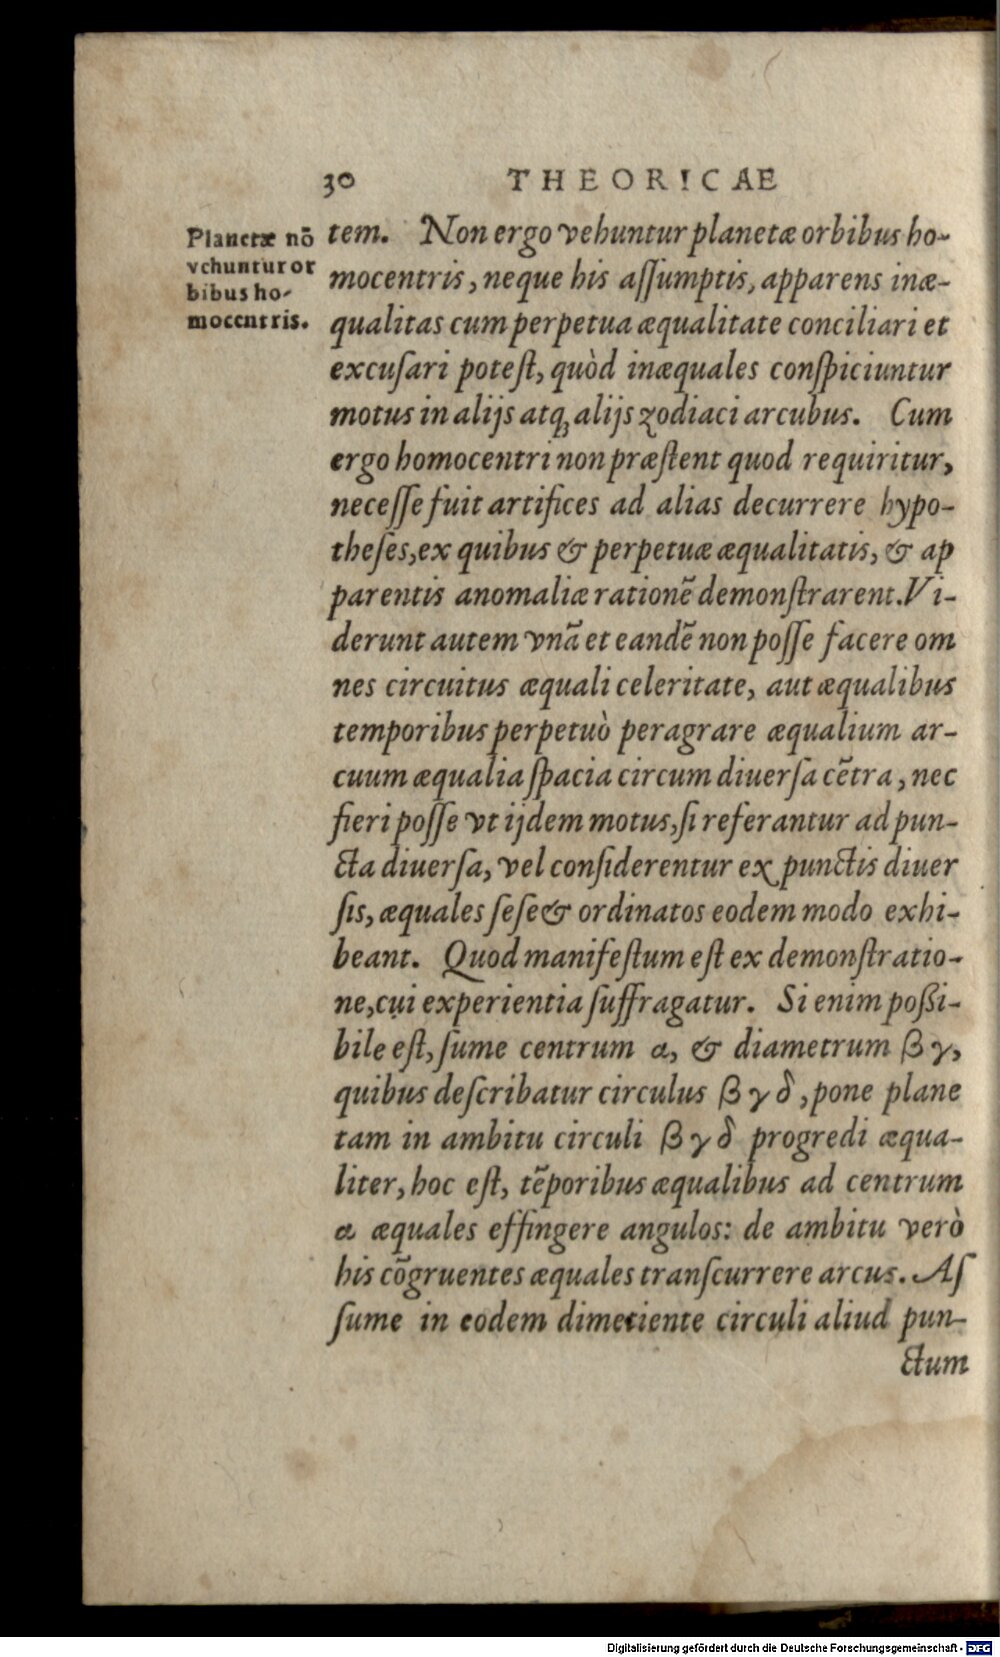 30 THEORICAE
Planetæ nō
vehuntur or
bibus ho-
mocentris.
tem. Non ergo vehuntur planetæ orbibus ho-
mocentris, neque his aſſumptis, apparens inæ-
qualitas cum perpetua æqualitate conciliari et
excuſari poteſt, quòd inæquales conſpiciuntur
motus in alijs atqꝫ alijs zodiaci arcubus. Cum
ergo homocentri non præſtent quod requiritur,
neceſſe fuit artifices ad alias decurrere hypo-
theſes, ex quibus & perpetuæ æqualitatis, & ap
parentis anomaliæ rationē demonſtrarent. Vi-
derunt autem vnā et eandē non poſſe facere om
nes circuitus æquali celeritate, aut æqualibus
temporibus perpetuò peragrare æqualium ar-
cuum æqualia ſpacia circum diuerſa cētra, nec
fieri poſſe vt ijdem motus, ſi referantur ad pun-
cta diuerſa, vel conſiderentur ex punctis diuer
ſis, æquales ſeſe & ordinatos eodem modo exhi-
beant. Quod manifeſtum eſt ex demonſtratio-
ne, cui experientia ſuffragatur. Si enim poßi-
bile eſt, ſume centrum α, & diametrum β γ,
quibus deſcribatur circulus β γ δ, pone plane
tam in ambitu circuli β γ δ progredi æqua-
liter, hoc eſt, tēporibus æqualibus ad centrum
α æquales effingere angulos: de ambitu verò
his cōgruentes æquales tranſcurrere arcus. Aſ
ſume in eodem dimetiente circuli aliud pun-
ctum
Digitalisierung gefördert durch die Deutsche Forschungsgemeinschaft - DFG